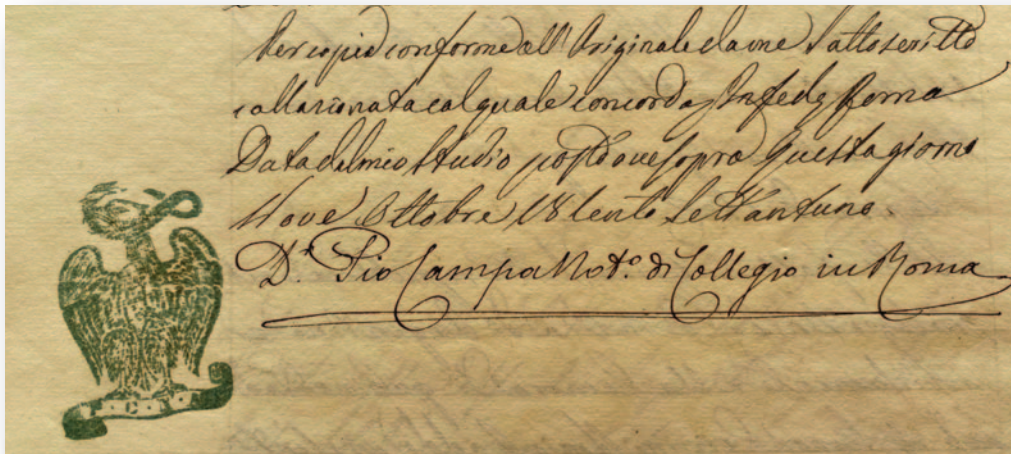 Per copia conforme all'Originale da me Sottoscritto
collazionata col quale concorda, In fede Roma
Data dal mio Studio posto ove sopra Questo giorno
Nove Ottobre 18cento Settantuno.
D.r Pio Campa Not.o di Collegio in Roma